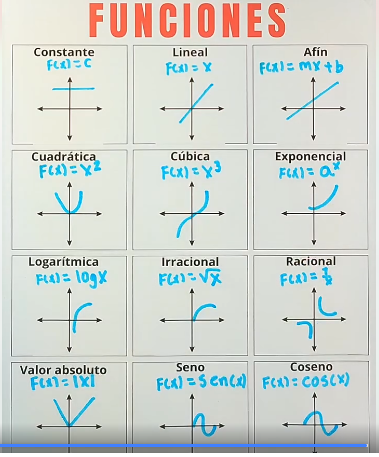 FUNCIONES
Constante
F(x)=c
Lineal
F(x)=x
Afín
F(x)=mx+b
Cuadrática
F(x)=x²
Cúbica
F(x)=x³
Exponencial
F(x)=aˣ
Logarítmica
F(x)=logx
Irracional
F(x)=√x
Racional
F(x)=1/x
Valor absoluto
F(x)=|x|
Seno
F(x)=sen(x)
Coseno
F(x)=cos(x)